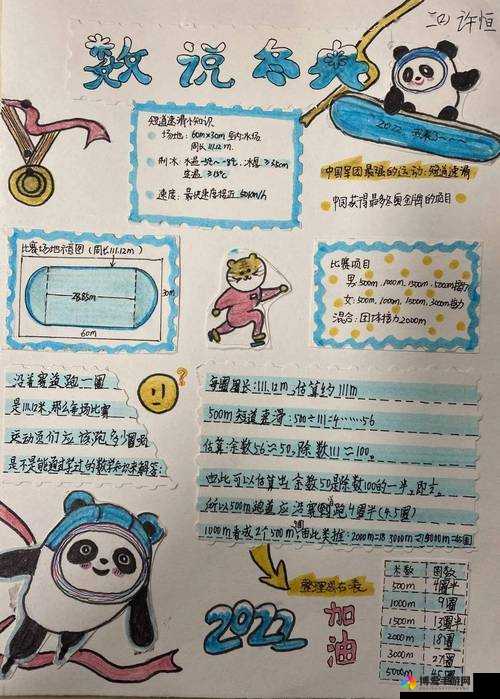 二(1) 许恒
数说冬奥
2022 我来了~~~
短道速滑小知识
场地：60m×30m 室内冰场
周长111.12m.
制冰：冰温-5℃~-8℃，冰厚≥35cm
室温≥15℃
速度：最快速度接近50km/h
中国军团最强的运动：短道速滑
中国获得最多冬奥金牌的项目
比赛场地示意图（周长111.12m）
28.85m
30m
60m
比赛项目
男：500m、1000m、1500m、5000m接力
女：500m、1000m、1500m、3000m接力
混合：团体接力2000m
沿着赛道跑一圈
是111.12米，那么每场比赛
运动员们应该跑多少圈呢
是不是能通过学过的数学知识来解答：
?
每圈周长：111.12m，估算约111m
500m短道速滑：500÷111=4……56
估算：余数56≈50，除数111≈100。
由此可以估算出余数50是除数100的一半。即才。
所以500m跑道应沿赛道跑4圈半(4.5圈)
1000m看成2个500m，由此类推：2000m=18
整理成右表
2022
加油
米数 圈数
500m 4圈半
1000m 9圈
1500m 13圈半
2000m 18圈
3000m 27圈
5000m 45圈
博爱手游网